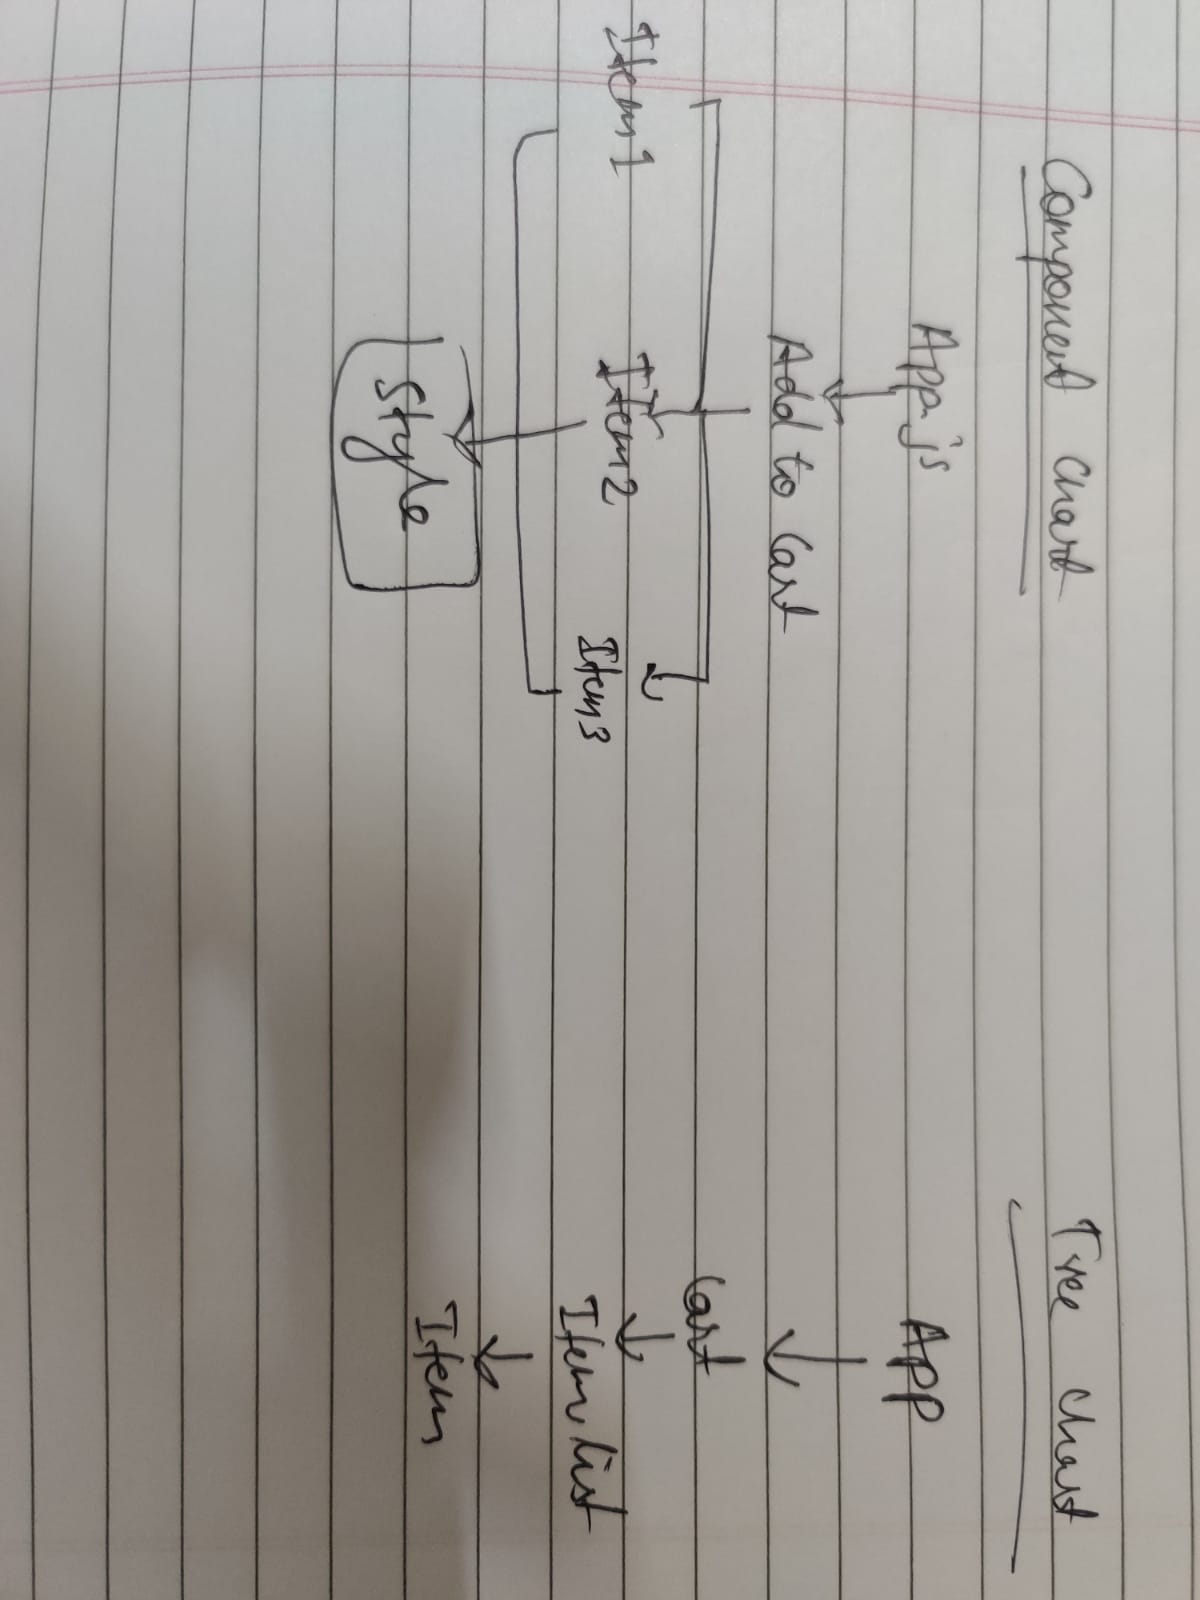 Component chart
App.js
Add to Cart
Item1
Item2
Item3
Style
Tree chart
APP
Cart
Item list
Item